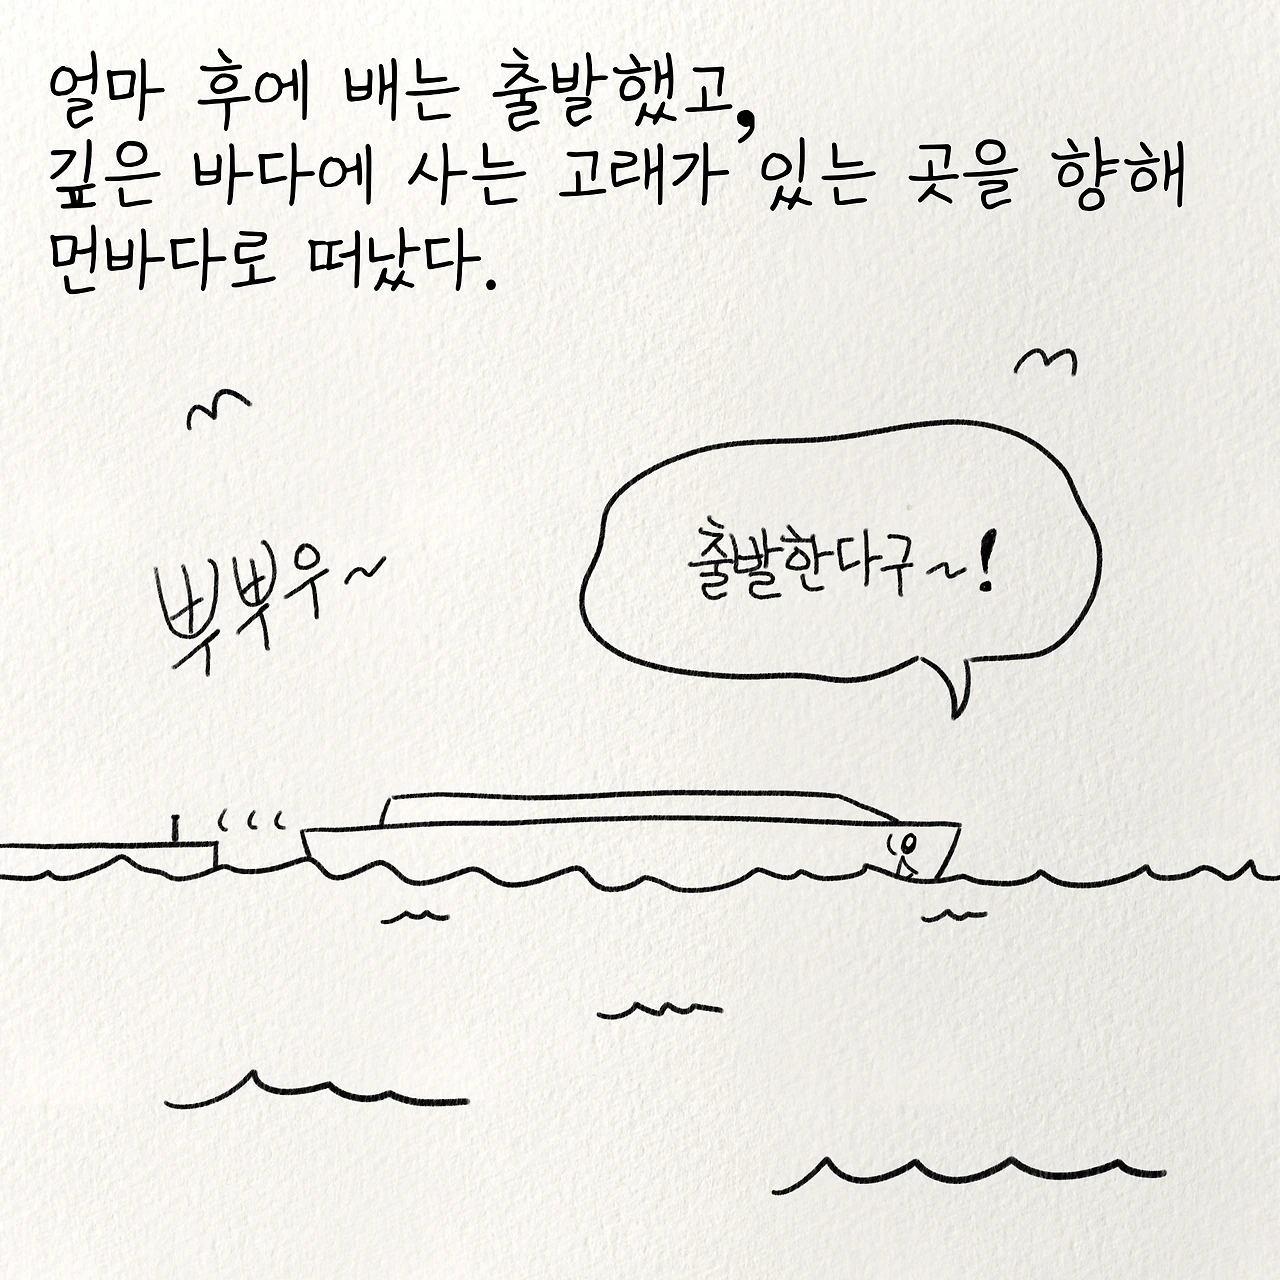 얼마 후에 배는 출발했고,
깊은 바다에 사는 고래가 있는 곳을 향해
먼바다로 떠났다.
출발한다구~!
뿌뿌우~